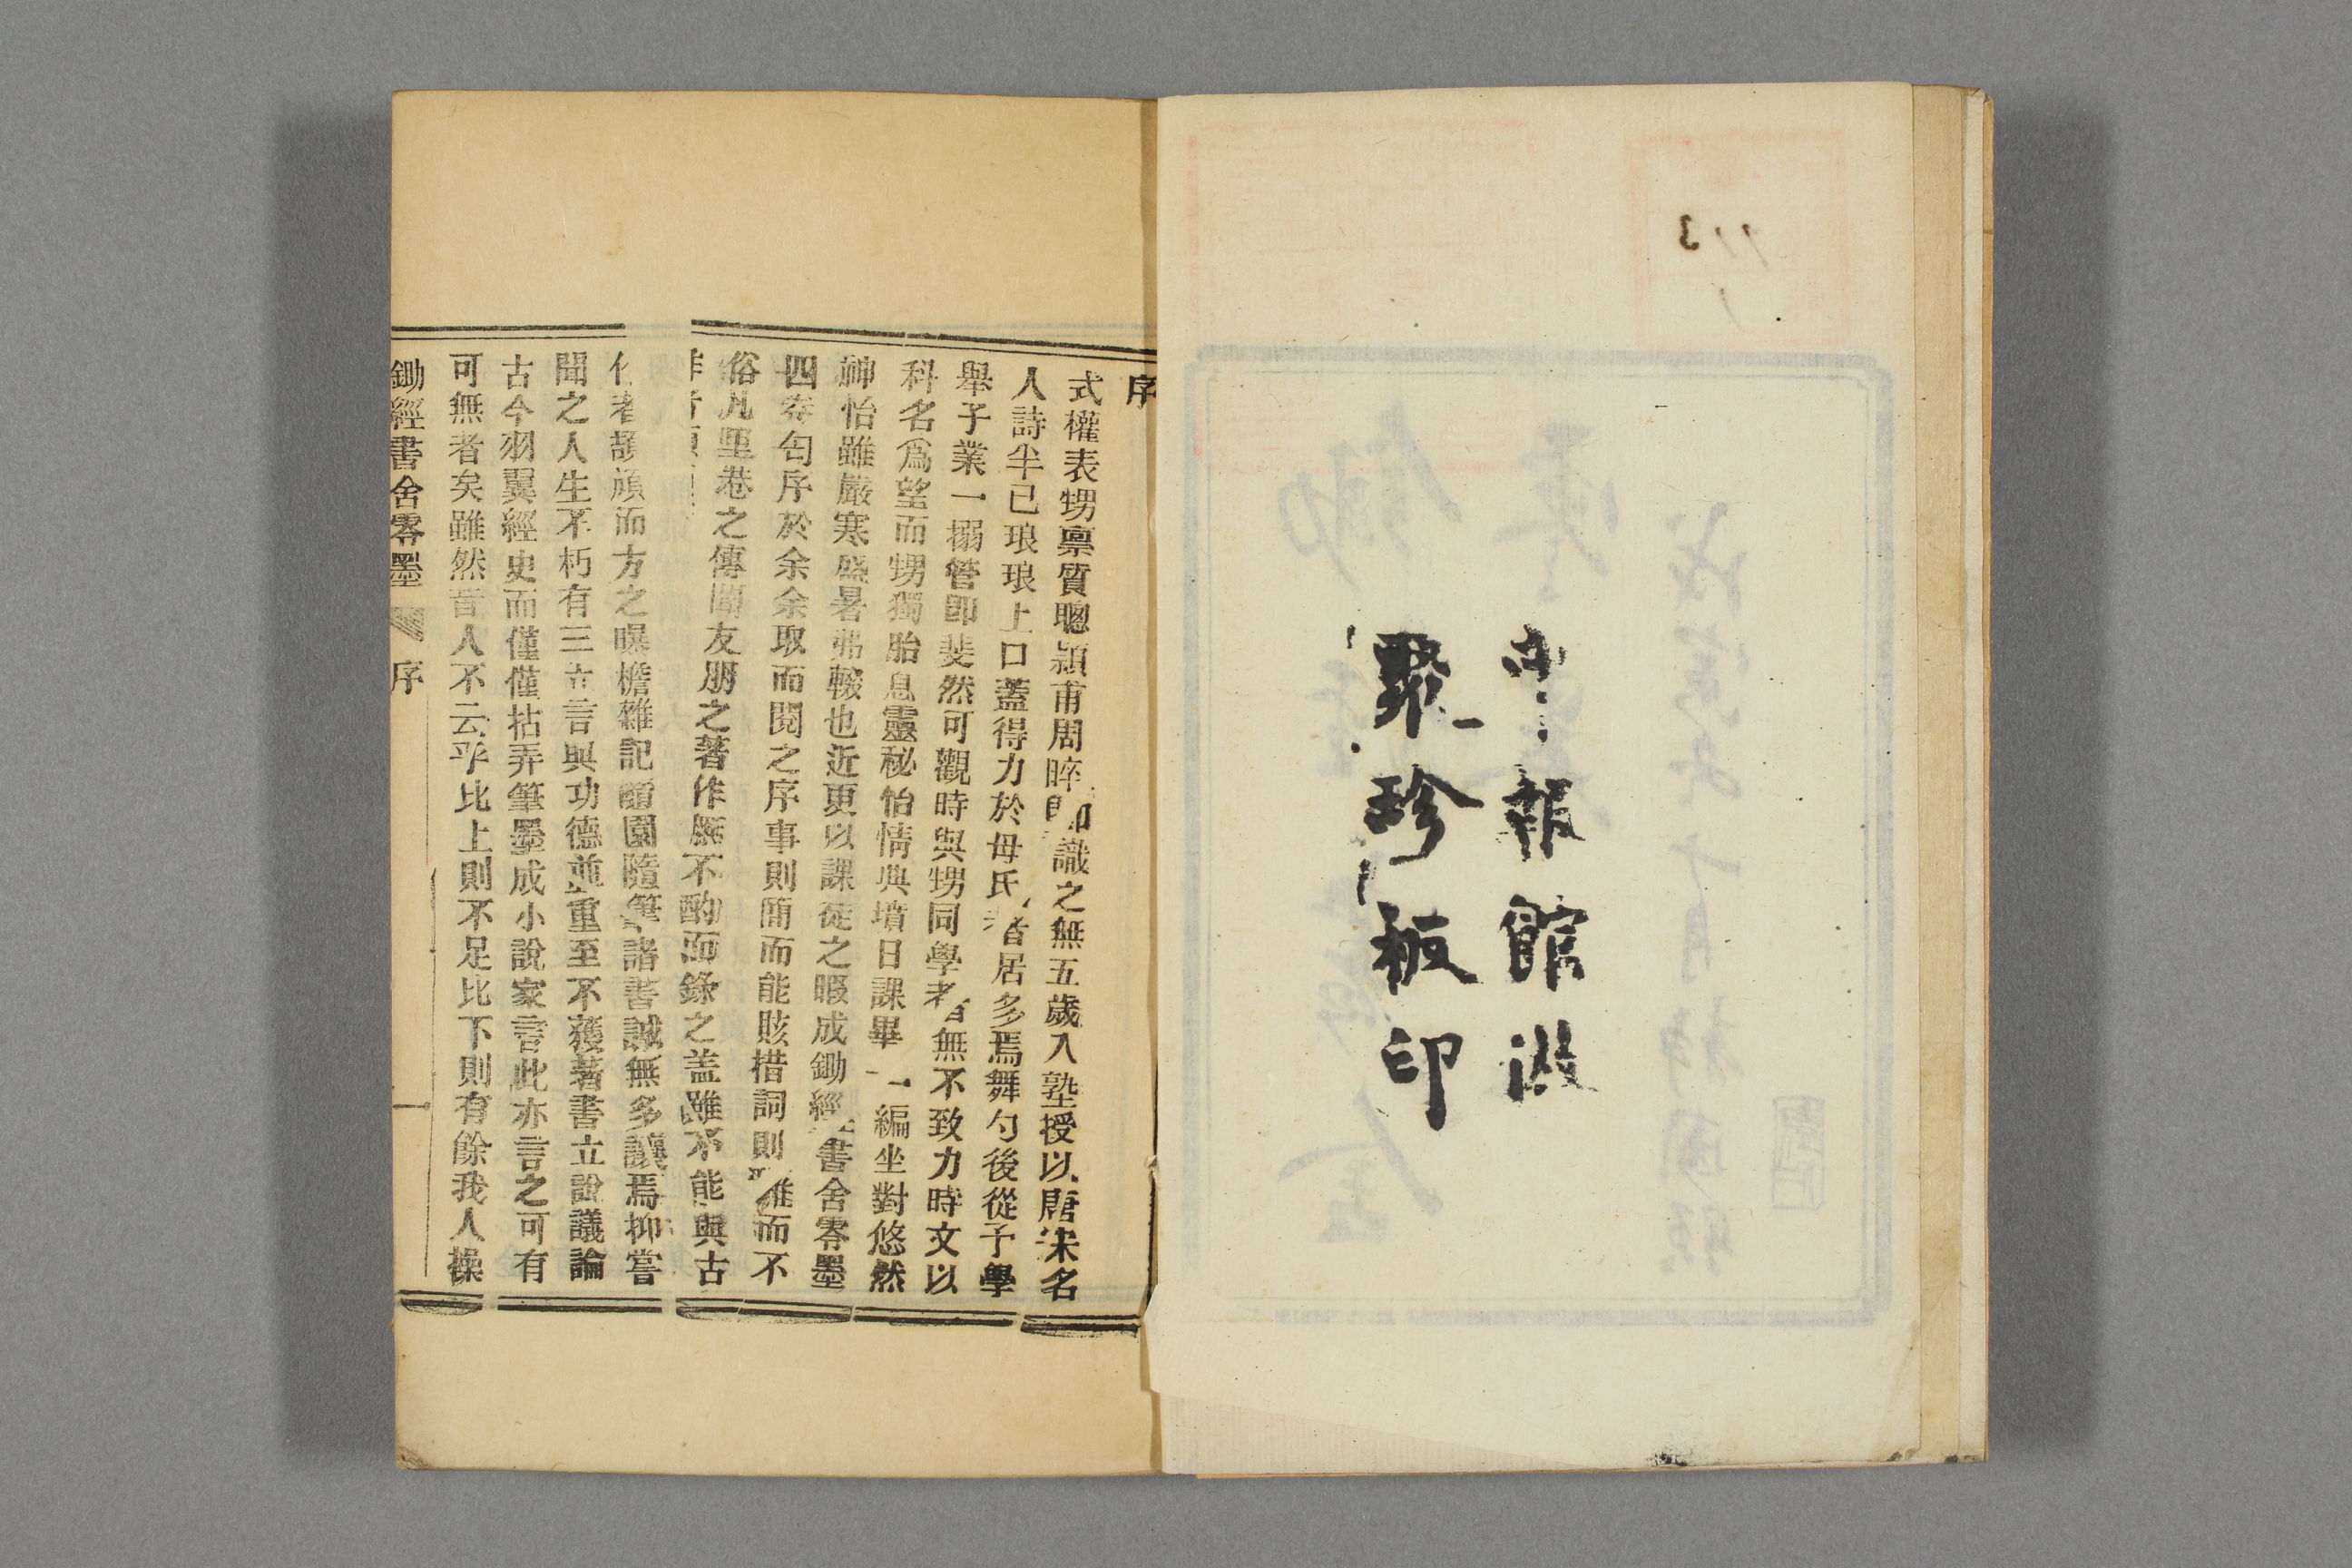 申報館倣
聚珍板印
序
式權表甥禀質聰頴甫周晬即識之無五歲入塾授以唐宋名
人詩半已琅琅上口蓋得力於母氏者居多焉舞勺後從予學
舉子業一搦管即斐然可觀時與甥同學者無不致力時文以
科名爲望而甥獨胎息靈秘怡情典墳日課畢一編坐對悠然
神怡雖嚴寒盛暑弗輟也近更以課徒之暇成鋤經書舍零墨
四卷匄序於余余取而閱之序事則簡而能賅措詞則雅而不
俗凡里巷之傳聞友朋之著作靡不酌而錄之盖雖不能與古
作者頡頏而方之曝檐雜記隨園隨筆諸書誠無多讓焉抑嘗
聞之人生不朽有三立言與功德並重至不獲著書立說議論
古今羽翼經史而僅僅拈弄筆墨成小說家言此亦言之可有
可無者矣雖然昔人不云乎比上則不足比下則有餘我人操
鋤經書舍零墨 序 一